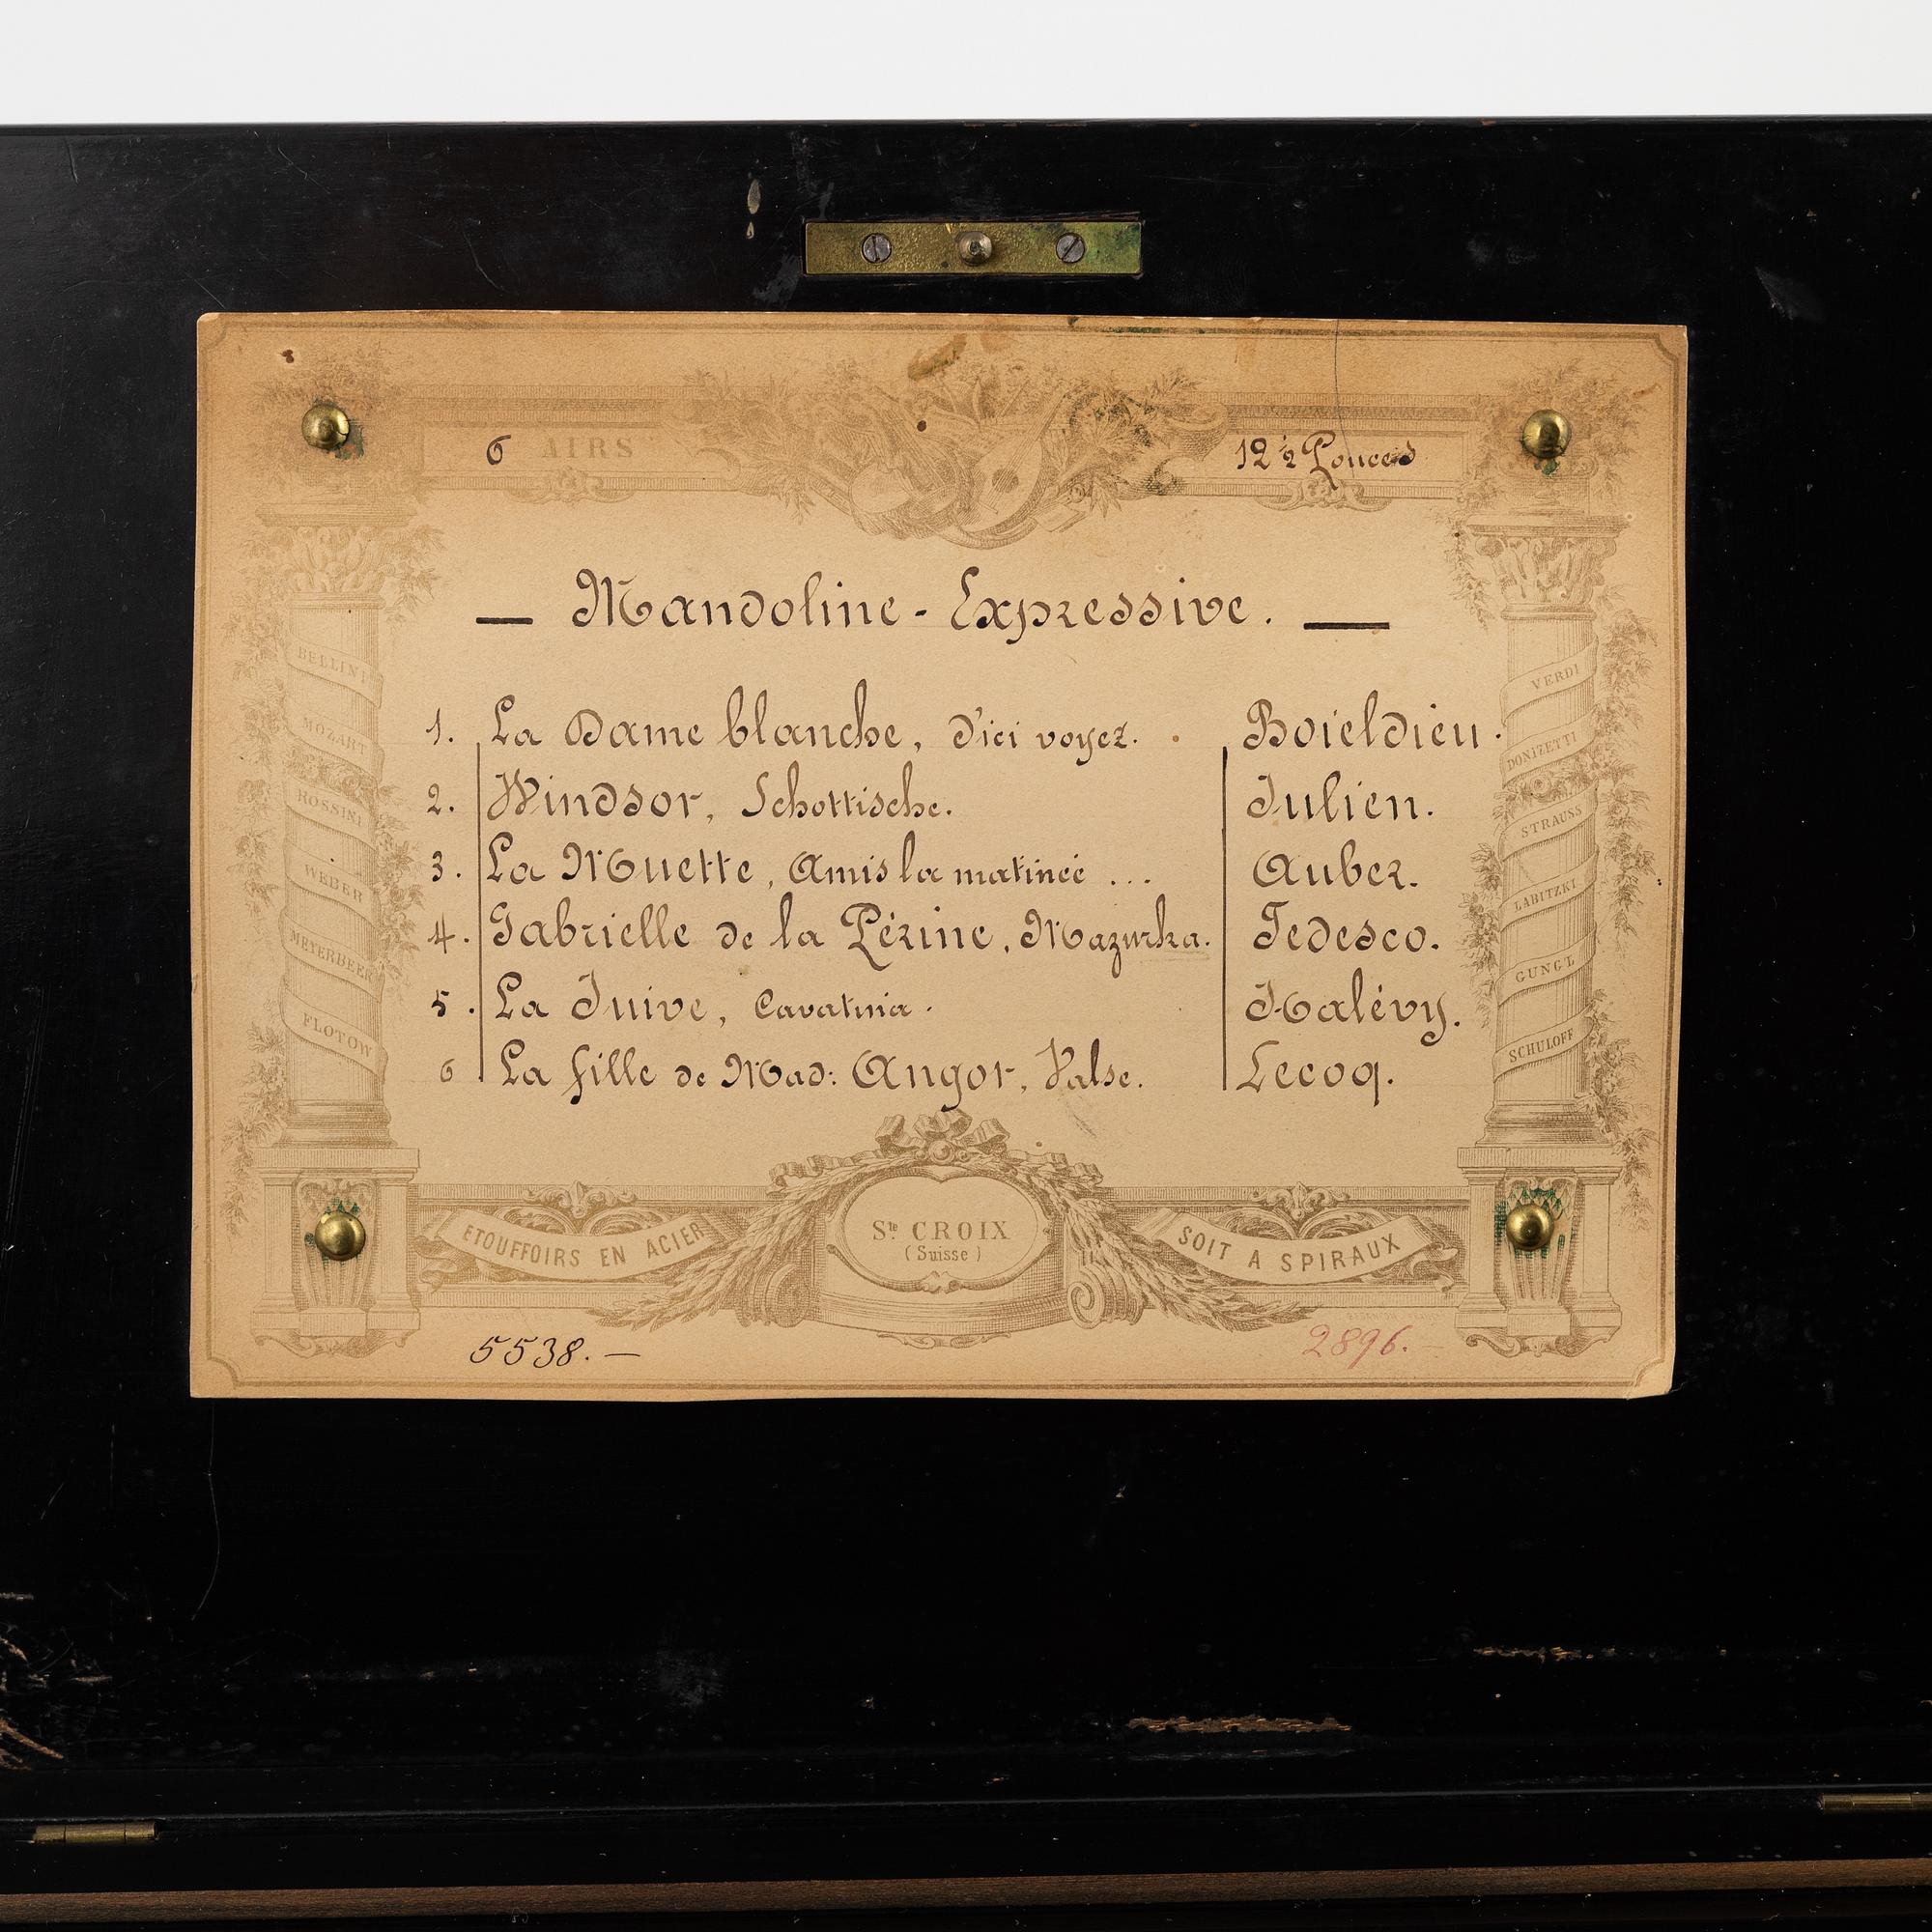 6 AIRS
12 ½ Pouces
— Mandoline - Expressive. —
1. La Dame blanche, d'ici voyez. Boieldieu.
2. Windsor, Schottische. Julien.
3. La Muette, Amis la matinée ... Auber.
4. Gabrielle de la Périne, Mazurka. Tedesco.
5. La Juive, Cavatina. Halévy.
6 La fille de Mad: Angot, Valse. Lecoq.
BELLINI
MOZART
ROSSINI
WEBER
MEYERBEER
FLOTOW
VERDI
DONIZETTI
STRAUSS
LABITZKI
GUNGL
SCHULOFF
ETOUFFOIRS EN ACIER
Ste CROIX
(Suisse)
SOIT A SPIRAUX
5538. —
2896. —